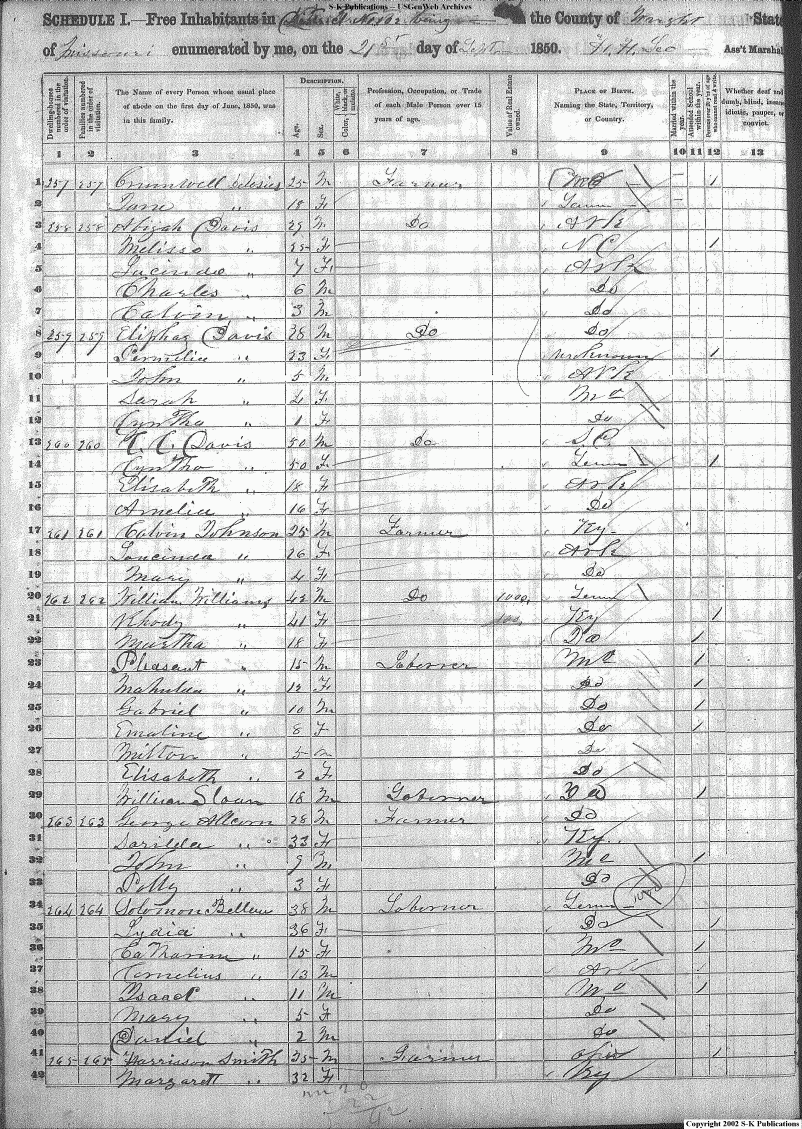 S-K Publications -- USGenWeb Archives
SCHEDULE I.—Free Inhabitants in the County of Wright State
of Missouri enumerated by me, on the 21st day of Sept 1850. Ass't Marshal
DESCRIPTION.
Dwelling-houses numbered in the order of visitation.
Families numbered in the order of visitation.
The Name of every Person whose usual place of abode on the first day of June, 1850, was in this family.
Age.
Sex.
Color, White, black, or mulatto.
Profession, Occupation, or Trade of each Male Person over 15 years of age.
Value of Real Estate owned.
PLACE OF BIRTH. Naming the State, Territory, or Country.
Married within the year.
Attended School within the year.
Persons over 20 y'rs of age who cannot read & write.
Whether deaf and dumb, blind, insane, idiotic, pauper, or convict.
1 2 3 4 5 6 7 8 9 10 11 12 13
1 257 257 Crumwell 25 M Farmer Mo 1
2 Jane " 18 F Tenn
3 258 258 Abigah Davis 29 M Do Ark
4 Melissa " 25 F NC 1
5 Lucinda " 7 F Ark
6 Charles " 6 M Do
7 Calvin " 3 M Do
8 259 259 Eliphaz Davis 28 M Do Do
9 Permelia " 23 F unknown 1
10 John " 5 M Ark
11 Sarah " 4 F Mo
12 Cyntha " 1 F Do
13 260 260 Davis 50 M Do SC
14 Cyntha " 50 F Tenn 1
15 Elisabeth " 18 F Ark
16 Amelia " 16 F Do
17 261 261 Calvin Johnson 25 M Farmer Ky
18 Loucinda " 26 F Ark
19 Mary " 4 F Do
20 262 262 William Williams 42 M Do 1000 Tenn
21 Rhody " 41 F Ky 1
22 Martha " 18 F Do 1
23 Pleasant " 15 M Laborner Mo 1
24 Mahulda " 12 F Do 1
25 Gabriel " 10 M Do 1
26 Emaline " 8 F Do 1
27 Milton " 5 m Do
28 Elisabeth " 2 F Do
29 William Sloan 18 M Laborner Do 1
30 263 263 George Allcorn 28 M Farmer Do
31 Sarilda " 33 F Ky
32 John " 9 M Mo 1
33 Polly " 3 F Do
34 264 264 Solomon Bellew 38 M Laborner Tenn
35 Lydia " 36 F Do 1
36 " 15 F Mo 1
37 Cornelius " 13 M Ark 1
38 Isaac " 11 M Mo 1
39 Mary " 5 F Do
40 Daniel " 2 M Do
41 265 265 Harrison Smith 35 M Farmer Ohio 1
42 Margarett " 32 F Ky
Copyright 2002 S-K Publications